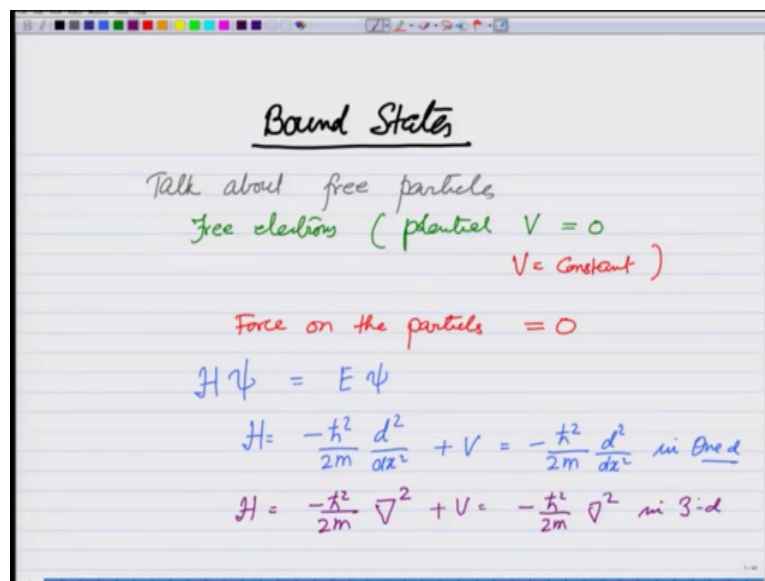 Bound States
Talk about free particles
Free electrons ( potential V = 0
V = Constant )
Force on the particles = 0
Hψ = Eψ
H = -ħ²/2m d²/dx² + V = -ħ²/2m d²/dx² in One d
H = -ħ²/2m ∇² + V = -ħ²/2m ∇² in 3-d